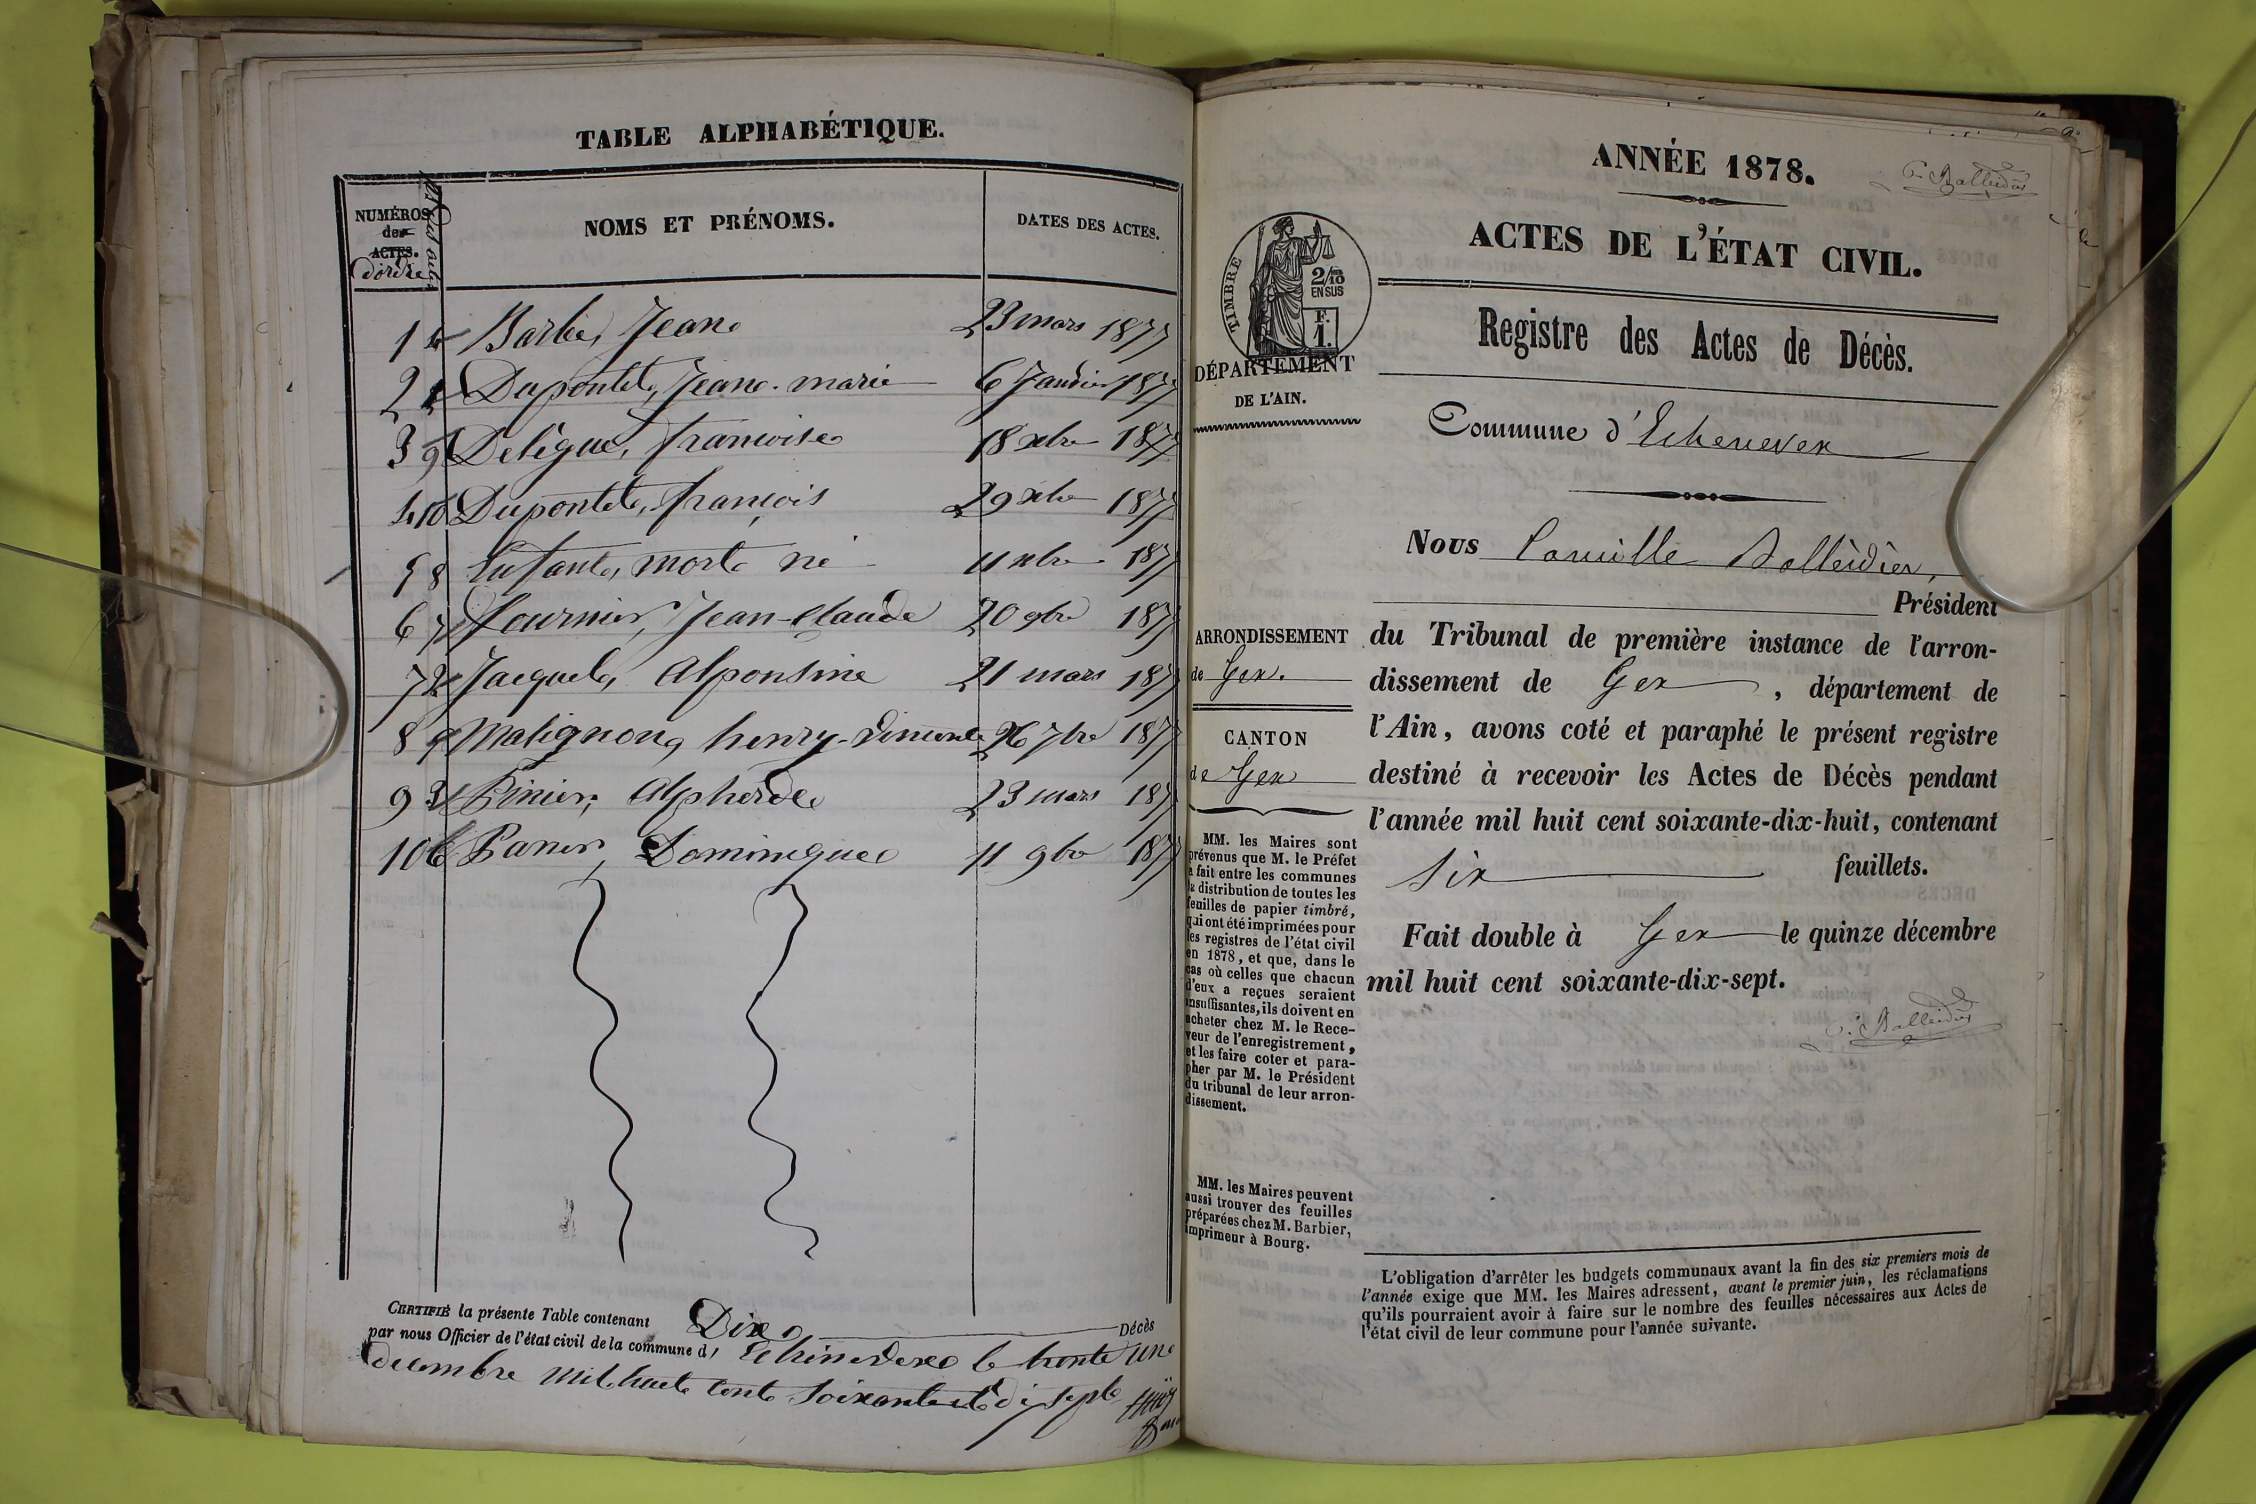 TABLE ALPHABÉTIQUE.
NUMÉROS
des
ACTES.
d'ordre
NOMS ET PRÉNOMS.
DATES DES ACTES.
1 4 Barbe, Jean 23 mars 1877
2 1 Dupontet, Jeane-marie 6 Janvier 1877
3 9 Delègue, francoise 18 xbre 1877
4 10 Dupontet, françois 29 xbre 1877
5 8 Enfant, mort né 11 xbre 1877
6 7 fournier, Jean-Claude 20 9bre 1877
7 2 Jacquet, Alponsine 21 mars 187
8 5 Malignon, henry-Vincent 26 7bre 187
9 3 Pinier, Alpherde 23 mars 187
10 6 Paner, Dominique 11 9bre 187
CERTIFIÉ la présente Table contenant Dix Décès
par nous Officier de l'état civil de la commune d, Echenevex le trente une
decembre mil huit cent soixante et dix sept
ANNÉE 1878.
C. Balleidier
ACTES DE L'ÉTAT CIVIL.
TIMBRE
2/10
EN SUS
F.
1.
DÉPARTEMENT
DE L'AIN.
Registre des Actes de Décès.
Commune d'Echenevex
Nous Camille Balleidier,
Président
du Tribunal de première instance de l'arron-
dissement de Gex, département de
l'Ain, avons coté et paraphé le présent registre
destiné à recevoir les Actes de Décès pendant
l'année mil huit cent soixante-dix-huit, contenant
six feuillets.
Fait double à Gex le quinze décembre
mil huit cent soixante-dix-sept.
C. Balleidier
ARRONDISSEMENT
de Gex.
CANTON
de Gex
MM. les Maires sont
prévenus que M. le Préfet
a fait entre les communes
la distribution de toutes les
feuilles de papier timbré,
qui ont été imprimées pour
les registres de l'état civil
en 1878, et que, dans le
cas où celles que chacun
d'eux a reçues seraient
insuffisantes, ils doivent en
acheter chez M. le Rece-
veur de l'enregistrement,
et les faire coter et para-
pher par M. le Président
du tribunal de leur arron-
dissement.
MM. les Maires peuvent
aussi trouver des feuilles
préparées chez M. Barbier,
imprimeur à Bourg.
L'obligation d'arrêter les budgets communaux avant la fin des six premiers mois de
l'année exige que MM. les Maires adressent, avant le premier juin, les réclamations
qu'ils pourraient avoir à faire sur le nombre des feuilles nécessaires aux Actes de
l'état civil de leur commune pour l'année suivante.